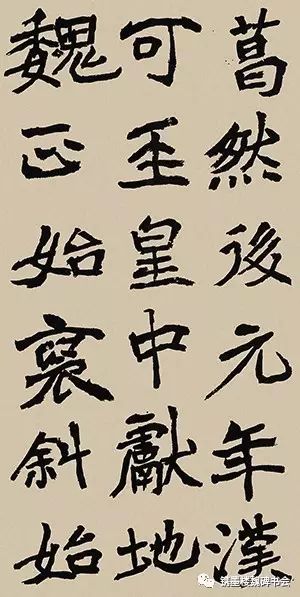 葛然後元年漢
可至皇中獻地
魏正始褒斜始
墨楼魏碑书会